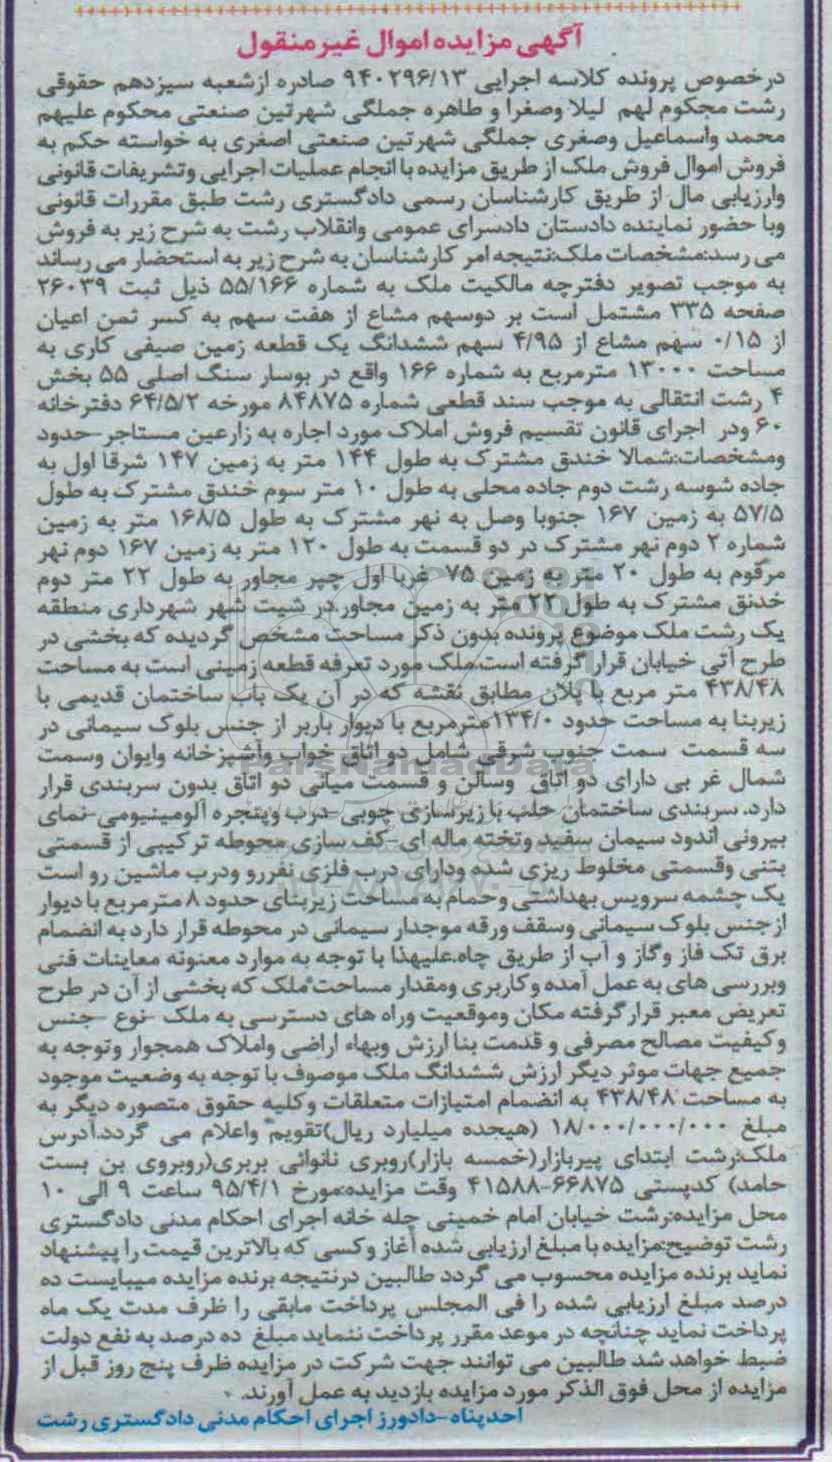 آگهی مزایده اموال غیرمنقول
درخصوص پرونده کلاسه اجرایی ۹۴۰۲۹۶/۱۳ صادره ازشعبه سیزدهم حقوقی
رشت محکوم لهم لیلا وصغرا و طاهره جملگی شهرتین صنعتی محکوم علیهم
محمد واسماعیل وصغری جملگی شهرتین صنعتی اصغری به خواسته حکم به
فروش اموال فروش ملک از طریق مزایده با انجام عملیات اجرایی وتشریفات قانونی
وارزیابی مال از طریق کارشناسان رسمی دادگستری رشت طبق مقررات قانونی
وبا حضور نماینده دادستان دادسرای عمومی وانقلاب رشت به شرح زیر به فروش
می رسد:مشخصات ملک:نتیجه امر کارشناسان به شرح زیر به استحضار می رساند
به موجب تصویر دفترچه مالکیت ملک به شماره ۵۵/۱۶۶ ذیل ثبت ۲۶۰۳۹
صفحه ۳۳۵ مشتمل است بر دوسهم مشاع از هفت سهم به کسر ثمن اعیان
از ۰/۱۵ سهم مشاع از ۴/۹۵ سهم ششدانگ یک قطعه زمین صیفی کاری به
مساحت ۱۳۰۰۰ مترمربع به شماره ۱۶۶ واقع در بوسار سنگ اصلی ۵۵ بخش
۴ رشت انتقالی به موجب سند قطعی شماره ۸۴۸۷۵ مورخه ۶۴/۵/۲ دفترخانه
۶۰ ودر اجرای قانون تقسیم فروش املاک مورد اجاره به زارعین مستاجر-حدود
ومشخصات:شمالا خندق مشترک به طول ۱۴۴ متر به زمین ۱۴۷ شرقا اول به
جاده شوسه رشت دوم جاده محلی به طول ۱۰ متر سوم خندق مشترک به طول
۵۷/۵ به زمین ۱۶۷ جنوبا وصل به نهر مشترک به طول ۱۶۸/۵ متر به زمین
شماره ۲ دوم نهر مشترک در دو قسمت به طول ۱۲۰ متر به زمین ۱۶۷ دوم نهر
مرقوم به طول ۲۰ متر به زمین ۷۵ غربا اول چپر مجاور به طول ۲۲ متر دوم
خدنق مشترک به طول ۲۲ متر به زمین مجاور.در شیت شهر شهرداری منطقه
یک رشت ملک موضوع پرونده بدون ذکر مساحت مشخص گردیده که بخشی در
طرح آتی خیابان قرار گرفته است.ملک مورد تعرفه قطعه زمینی است به مساحت
۴۳۸/۴۸ متر مربع با پلان مطابق نقشه که در آن یک باب ساختمان قدیمی با
زیربنا به مساحت حدود ۱۳۴/۰مترمربع با دیوار باربر از جنس بلوک سیمانی در
سه قسمت سمت جنوب شرقی شامل دو اتاق خواب وآشپزخانه وایوان وسمت
شمال غر بی دارای دو اتاق وسالن و قسمت میانی دو اتاق بدون سربندی قرار
دارد. سربندی ساختمان حلب با زیرسازی چوبی-درب وپنجره آلومینیومی-نمای
بیرونی اندود سیمان سفید وتخته ماله ای-کف سازی محوطه ترکیبی از قسمتی
بتنی وقسمتی مخلوط ریزی شده ودارای درب فلزی نفررو ودرب ماشین رو است
یک چشمه سرویس بهداشتی وحمام به مساحت زیربنای حدود ۸ مترمربع با دیوار
ازجنس بلوک سیمانی وسقف ورقه موجدار سیمانی در محوطه قرار دارد به انضمام
برق تک فاز وگاز و آب از طریق چاه.علیهذا با توجه به موارد معنونه معاینات فنی
وبررسی های به عمل آمده و کاربری ومقدار مساحت ملک که بخشی از آن در طرح
تعریض معبر قرار گرفته مکان وموقعیت وراه های دسترسی به ملک -نوع -جنس
وکیفیت مصالح مصرفی و قدمت بنا ارزش وبهاء اراضی واملاک همجوار وتوجه به
جمیع جهات موثر دیگر ارزش ششدانگ ملک موصوف با توجه به وضعیت موجود
به مساحت ۴۳۸/۴۸ به انضمام امتیازات متعلقات وکلیه حقوق متصوره دیگر به
مبلغ ۱۸/۰۰۰/۰۰۰/۰۰۰ (هیجده میلیارد ریال)تقویم واعلام می گردد.آدرس
ملک:رشت ابتدای پیربازار(خمسه بازار)روبری نانوائی بربری(روبروی بن بست
حامد) کدپستی ۶۶۸۷۵-۴۱۵۸۸ وقت مزایده:مورخ ۹۵/۴/۱ ساعت ۹ الی ۱۰
محل مزایده:رشت خیابان امام خمینی چله خانه اجرای احکام مدنی دادگستری
رشت توضیح:مزایده با مبلغ ارزیابی شده آغاز وکسی که بالاترین قیمت را پیشنهاد
نماید برنده مزایده محسوب می گردد طالبین درنتیجه برنده مزایده میبایست ده
درصد مبلغ ارزیابی شده را فی المجلس پرداخت مابقی را ظرف مدت یک ماه
پرداخت نماید چنانچه در موعد مقرر پرداخت ننماید مبلغ ده درصد به نفع دولت
ضبط خواهد شد طالبین می توانند جهت شرکت در مزایده ظرف پنج روز قبل از
مزایده از محل فوق الذکر مورد مزایده بازدید به عمل آورند.
احدپناه-دادورز اجرای احکام مدنی دادگستری رشت
ParsNamadData